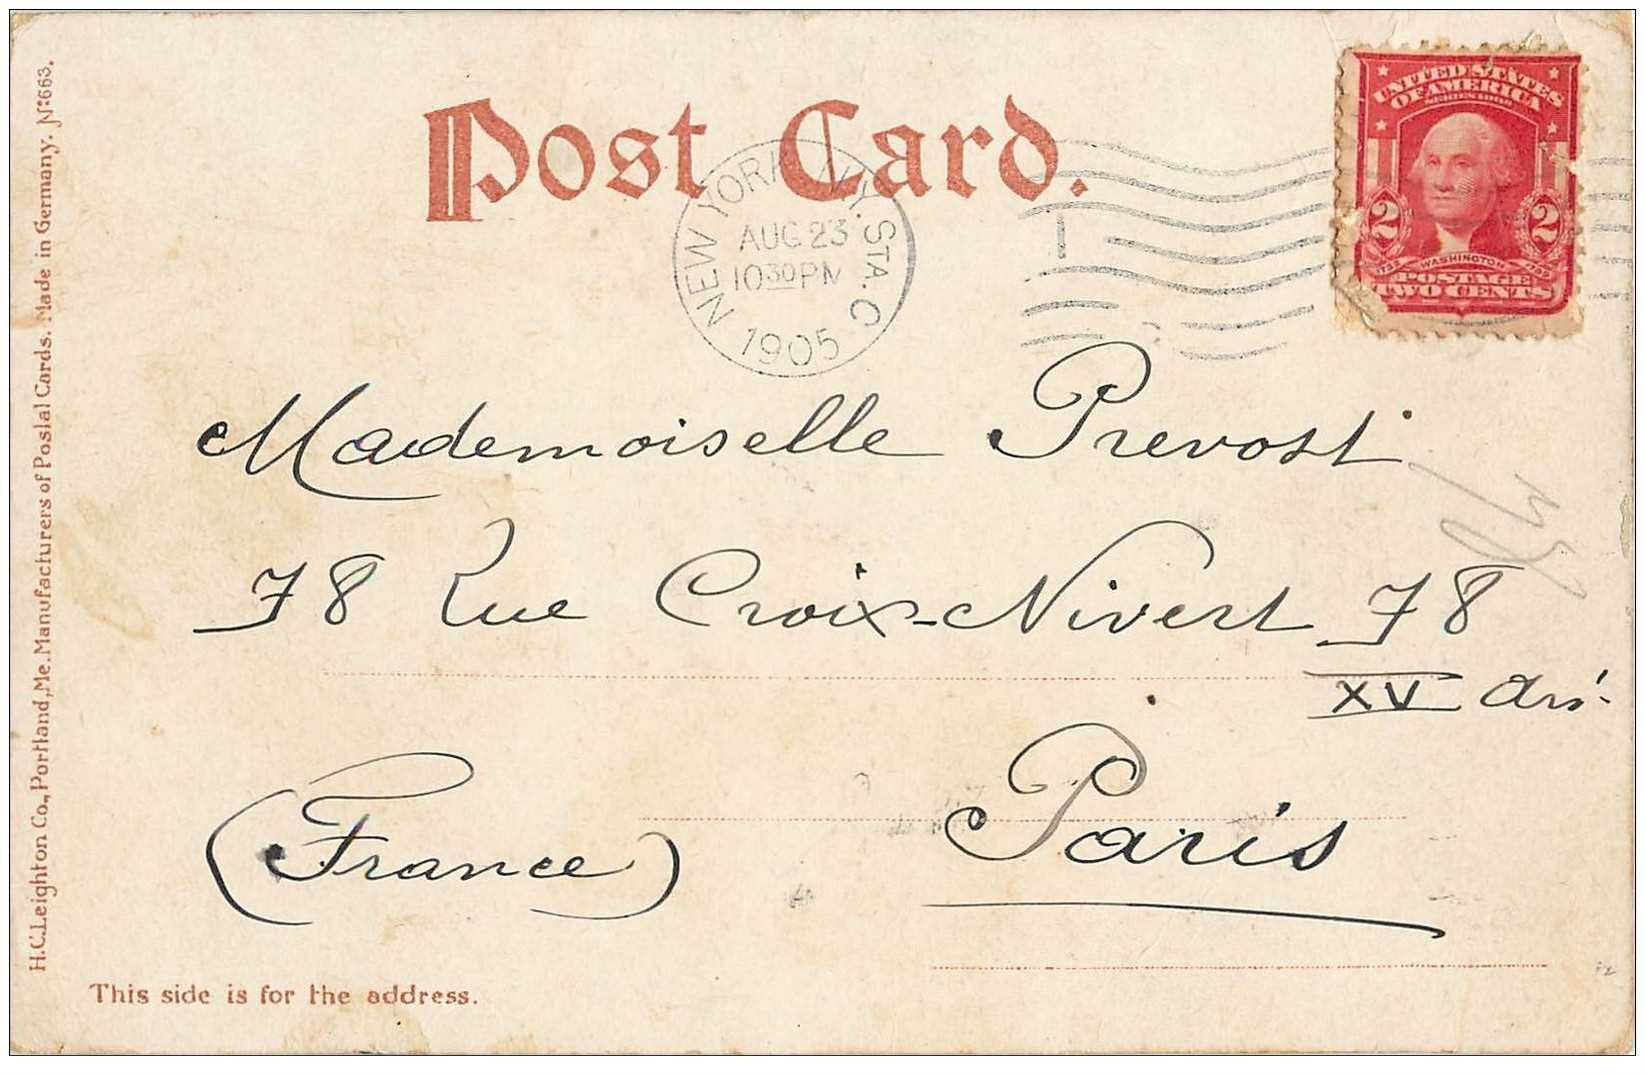 Post Card.
NEW YORK, N.Y. STA. C
AUG 23
10 30 PM
1905
UNITED STATES
OF AMERICA
SERIES 1902
2 2
WASHINGTON
POSTAGE
TWO CENTS
Mademoiselle Prevost
78 Rue Croix-Nivert 78
XV arr.
Paris
(France)
This side is for the address.
H.C. Leighton Co., Portland, Me. Manufacturers of Postal Cards. Made in Germany. No 663.